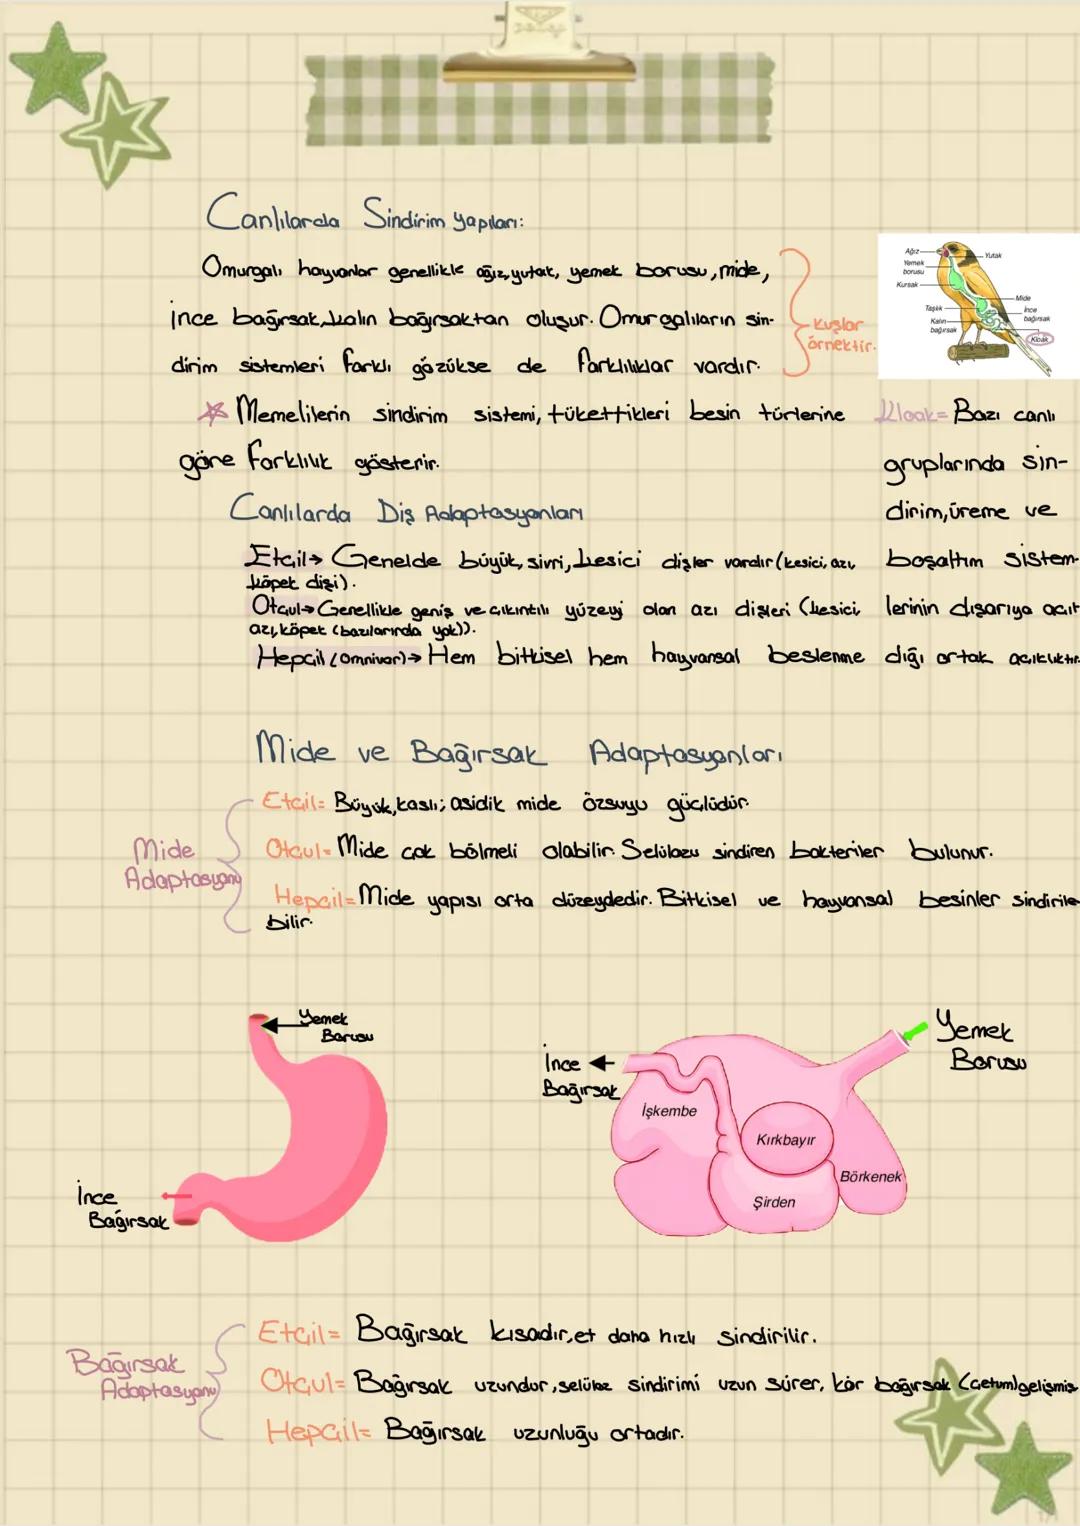 Canlılarda Sindirim yapıları:
Omurgalı hayvanlar genellikle ağız, yutak, yemek borusu, mide,
ince bağırsak, kalın bağırsaktan oluşur. Omurgalıların sin-
dirim sistemleri farklı gözükse de farklılıklar vardır.
Kuşlar
örnektir.
Ağız
Yutak
Yemek
borusu
Kursak
Mide
Taşlık
İnce
bağırsak
Kalın
bağırsak
Kloak
☆ Memelilerin sindirim sistemi, tükettikleri besin türlerine
göre farklılık gösterir.
Kloak= Bazı canlı
gruplarında sin-
dirim, üreme ve
boşaltım sistem-
lerinin dışarıya açıl
dığı ortak açıklıktır.
Canlılarda Diş Adaptasyonları
Etçil→ Genelde büyük, sivri, kesici dişler vardır (kesici, azı,
köpek dişi).
Otçul→ Genellikle geniş ve çıkıntılı yüzeyi olan azı dişleri (kesici
azı, köpek (bazılarında yok)).
Hepçil (omnivor)→ Hem bitkisel hem hayvansal beslenme
Mide ve Bağırsak Adaptasyonları
Mide
Adaptasyonu
Etçil= Büyük, kaslı; asidik mide özsuyu güçlüdür.
Otçul= Mide çok bölmeli olabilir. Selülozu sindiren bakteriler bulunur.
Hepçil= Mide yapısı orta düzeydedir. Bitkisel ve hayvansal besinler sindirile
bilir.
Yemek
Borusu
İnce
Bağırsak
Yemek
Borusu
İnce
Bağırsak
İşkembe
Kırkbayır
Börkenek
Şirden
Bağırsak
Adaptasyonu
Etçil= Bağırsak kısadır, et daha hızlı sindirilir.
Otçul= Bağırsak uzundur, selüloz sindirimi uzun sürer, kör bağırsak (çekum) gelişmiş
Hepçil= Bağırsak uzunluğu ortadır.
1/1